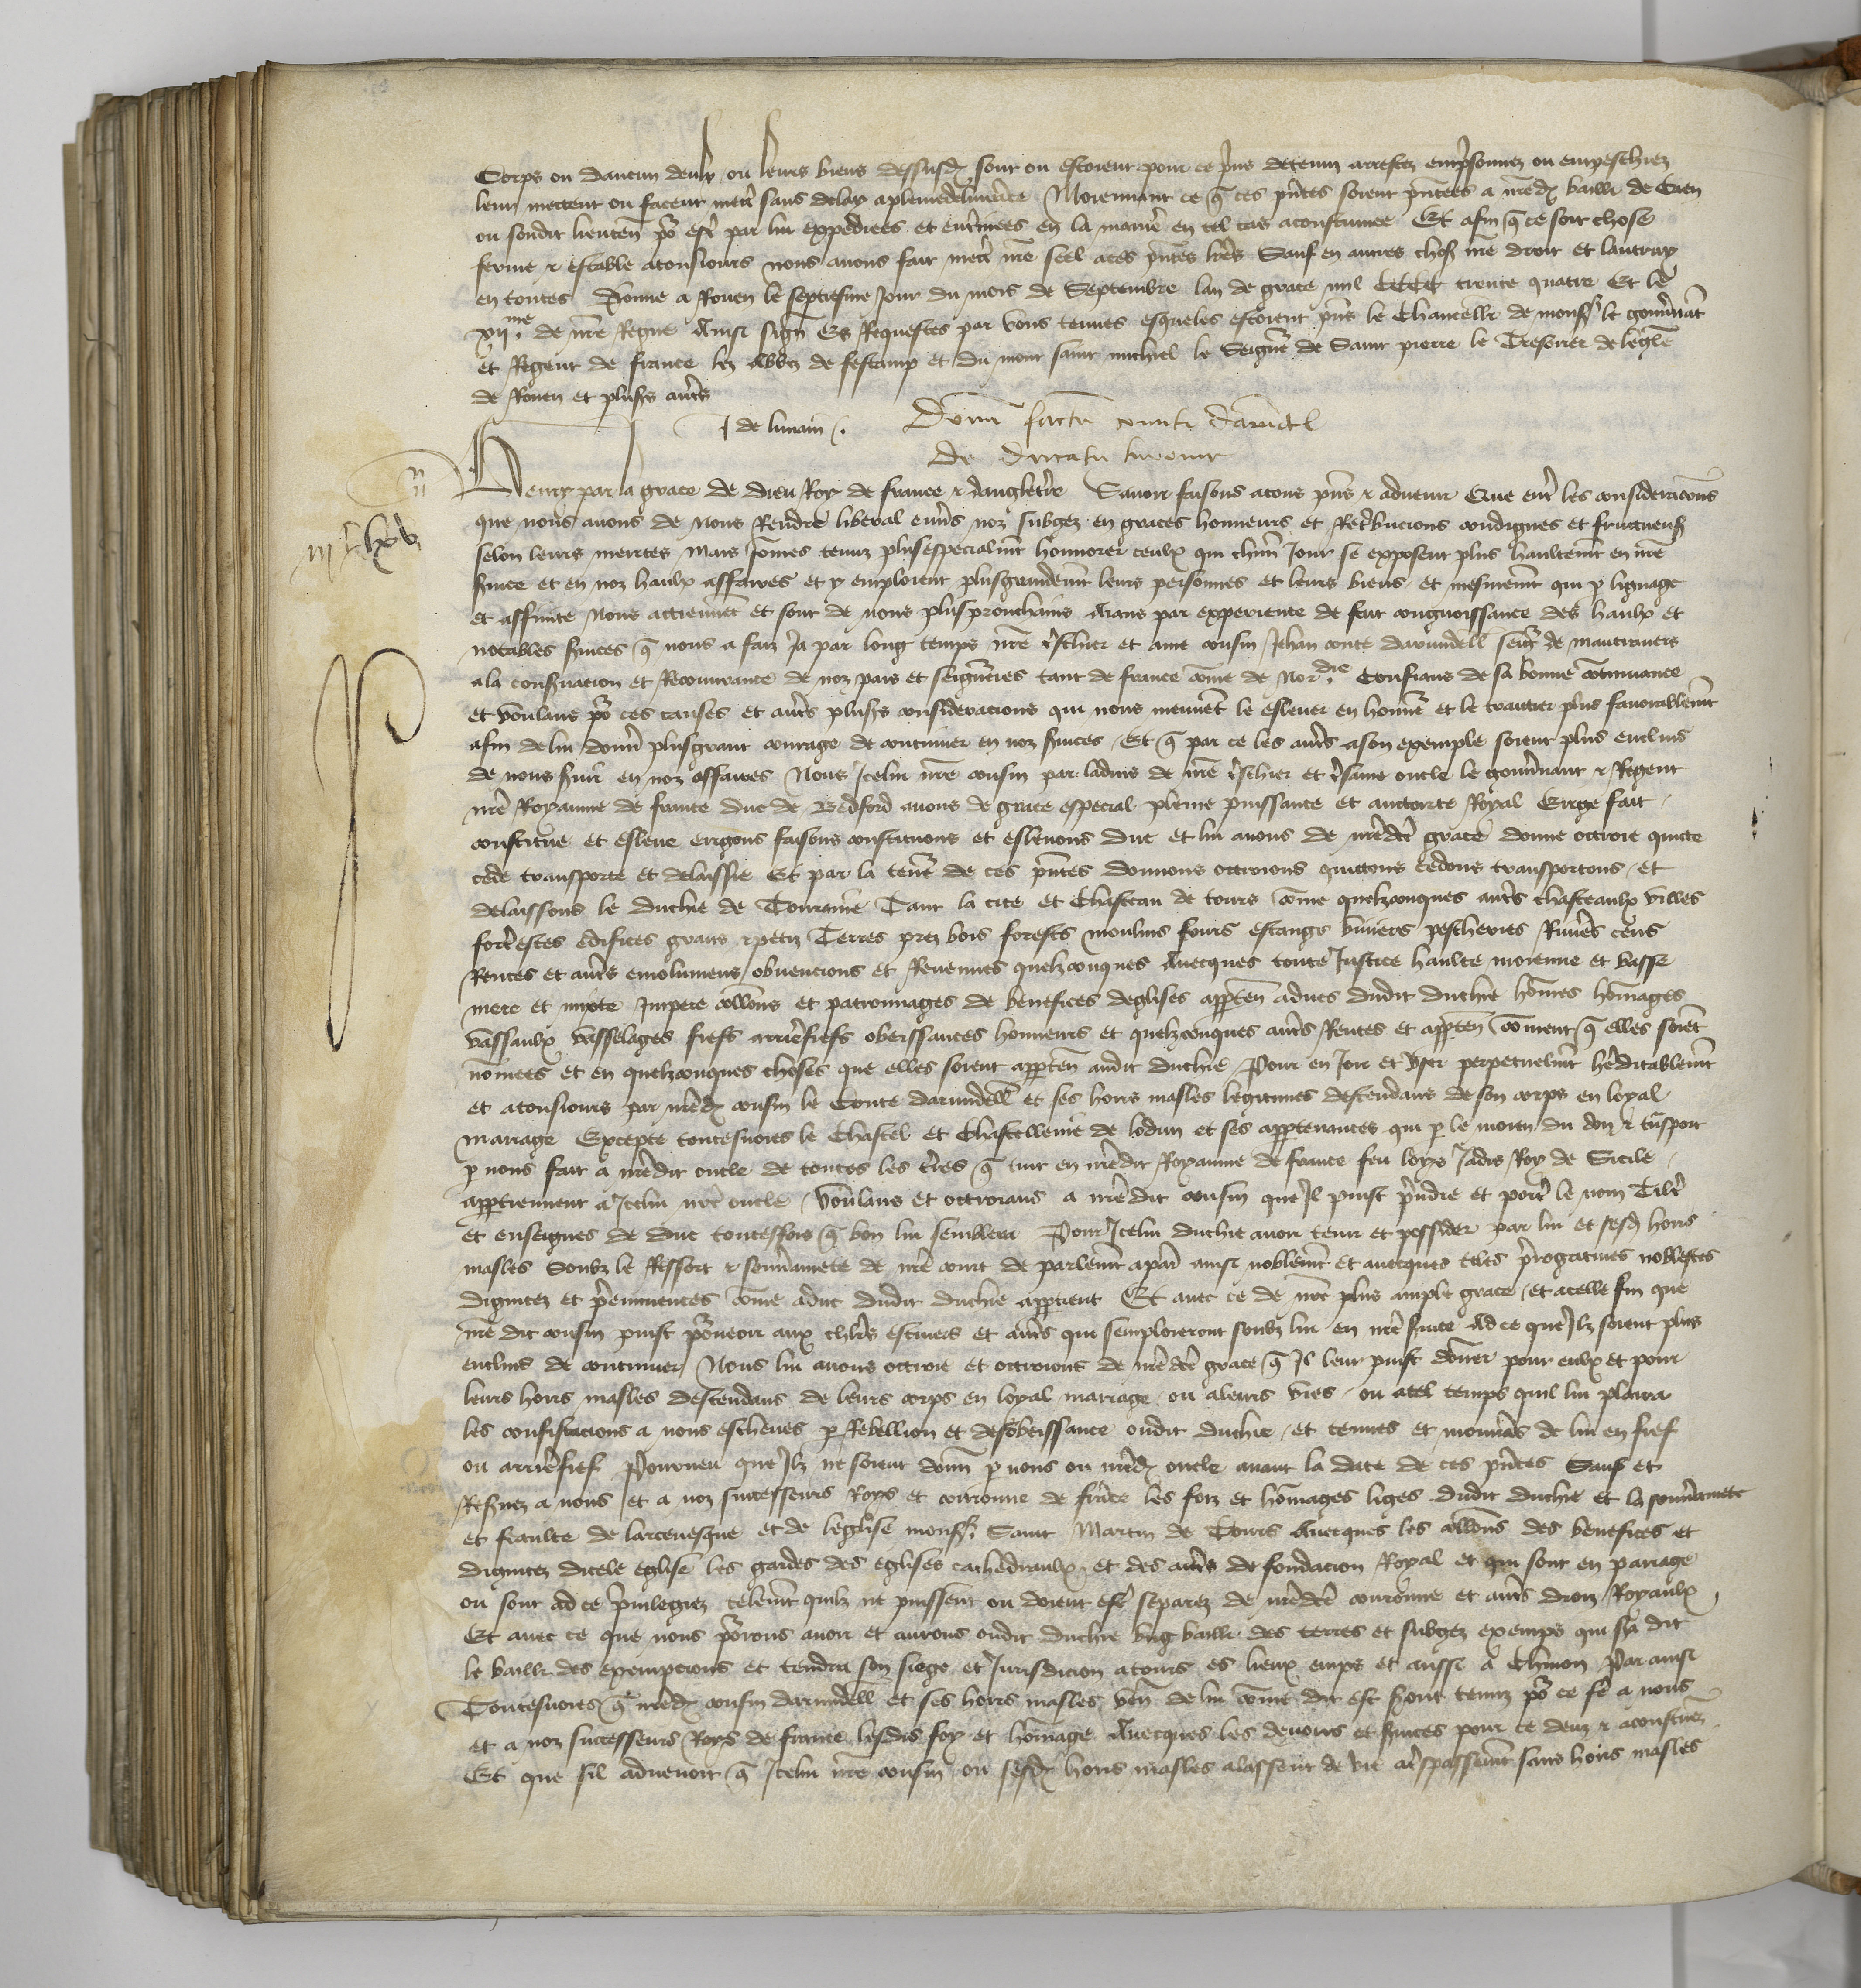 Corps ou daucun deulx ou leurs biens dessusd sont ou estoient pour ce prins detenuz arrestez emprisonnez ou empeschiez
leur mettent ou facent mettre sans delay a plenie deliurance Moiennant ce q ces pntes soient pntees a nred bailli de Caen
ou sondit lieuten pour estre par lui expediees et enterinees en la maniere en tel cas acoustumee Et afin q ce soit chose
ferme & estable atousiours nous auons fait mettre nre seel aces pntes lres Sauf en autres choses nre droit et lautruy
en toutes Donne a Rouen le septiesme Jour du mois de Septembre lan de grace mil CCCC trente quatre Et le
xij.me de nre Regne Ainsi signe Es Requestes par vous tenues esqueles estoient pns le Chancellr de monss le gouuernant
et Regent de france les Abbes de fescamp et du mont saint michiel le Seigneur de Saint pierre le Tresorier de leglise
de Rouen et plusrs autres
J de lunain . Donu factu comiti darundel
de Ducatu turonie
Henry par la grace de dieu Roy de france & dangleterre Sauoir faisons atous pns & aduenir Que entre les consideracions
que nous auons de nous Rendre liberal enuers noz subgez en graces honneurs et Retribucions condignes et fructueuses
selon leurs merites Mais sommes tenuz plusespecialmt honnorer ceulx qui chun Jour se exposent plus haultemt en nre
seruice et en noz haulx affaires et y emploient plusgrandemt leurs personnes et leurs biens et mesmemt qui p lignage
et affinite nous attiennent et sont de nous plusprouchains Aians par experience de fait congnoissance des haulx et
notables seruices q nous a faiz Ja par long temps nre treschier et ame cousin Jehan conte darundell seigr de mautrauers
ala conseruacion et Recouurance de noz pais et seigneuries tant de france comme de Nordie Confians de sa bonne continuance
et voulans pour ces causes et autres plusrs consideracions qui nous meuuent le esleuer en honneur et le traictier plus fauorablemt
afin de lui donner plusgrant courage de continuer en noz seruices Et q par ce les autres a son exemple soient plus enclins
de nous seruir en noz affaires Nous Icelui nre cousin par laduis de nre treschier et tresame oncle le gouuernant & Regent
nre Royaume de france duc de Bedford auons de grace especial plaine puissance et auctorite Royal Erige fait
constitue et esleue erigons faisons constituons et esleuons duc et lui auons de nredte grace donne octroie quicte
cede transporte et delaissie Et par la teneur de ces pntes donnons octroions quictons cedons transportons et
delaissons le duchie de Touraine Tant la cite et Chasteau de tours comme quelzconques autres chasteaulx villes
forteresces edifices grans & petiz Terres prez bois forests moulins fours estangs viuiers pescheries Riuieres cens
Rentes et autres emolumens obuencions et Reuenues quelzconques Auecques toute Justice haulte moienne et basse
mere et mixte Impere collacions et patronnages de benefices deglises apparten aducs dudit duchie hommes hommages
vassaulx vasselages fiefs arrierefiefs obeissances honneurs et quelzconques autres Rentes et apparten comment q elles soient
nommees et en quelzconques choses que elles soient apparten audit duchie Pour en Joir et vser perpetuelmt hereditablemt
et atousiours par nred cousin le Conte darundell et ses hoirs masles legitimes descendans de son corps en loyal
mariage Excepte toutesuoies le Chastel et Chastellenie de lodun et ses appartenances qui p le moien du don & transport
p nous fait a nredit oncle de toutes les terres q tint en nredit Royaume de france feu loys Jadis Roy de Sicile
appartiennent a Icelui nre oncle Voulans et octroians a nredit cousin que Il puist prendre et porter le nom Tiltre
et enseignes de duc toutesfois q bon lui semblera Pour Icelui duchie auoir tenir et posseder par lui et sesd hoirs
masles Soubz le Ressort & souuerainete de nre court de parlemt a paris ainsi noblemt et auecques teles prerogatiues noblesces
dignitez et preeminences comme aduc dudit duchie appartient Et auec ce de nre plus ample grace et acelle fin que
nre dit cousin puist pourueoir aux chlrs escuiers et autres qui semploieront soubz lui en nre seruice Ad ce que Ilz soient plus
enclins de continuer Nous lui auons octroie et octroions de nredte grace q Il leur puist donner pour eulx et pour
leurs hoirs masles descendans de leurs corps en loyal mariage ou aleurs vies ou atel temps quil lui plaira
les confiscacions a nous escheues p Rebellion et desobeissance oudit duchie et tenues et mouuans de lui en fief
ou arrierefief Pourueu que Ilz ne soient donn p nous ou nred oncle auant la date de ces pntes Sauf et
Reseruez a nous et a noz successeurs Roys et couronne de france les foiz et hommages liges dudit duchie et la souuerainete
et feaulte de larceuesque et de leglise monsr Saint Martin de Tours Auecques les collacions des benefices et
dignitez dicele eglise les gardes des eglises cathedraulx et des autres de fondacion Royal et qui sont en pariage
ou sont ad ce preuilegiez telemt quilz ne puissent ou doient estre separez de nredte couronne et autres droiz Royaulx
Et auec ce que nous pourrons auoir et aurons oudit duchie vng bailli des terres et subgez exemps qui sera dit
le bailli des exempcions et tendra son siege et Jurisdicion atours es lieux exemps et aussi a Chinon Par ainsi
Toutesuoies q nred cousin darundell et ses hoirs masles ven de lui comme dit est seront tenuz pour ce fe a nous
et a noz successeurs Roys de france lesdis foy et hommage Auecques les deuoirs et seruices pour ce deuz & acoustumez
Et que sil aduenoit q Icelui nre cousin ou sesd hoirs masles alassent de vie a trespassemt sans hoirs masles